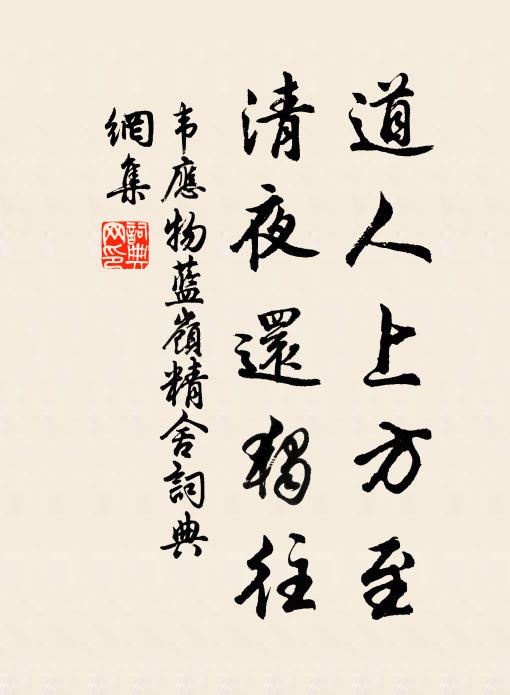 道人上方至
清夜還獨往
韦應物藍嶺精舍詞典
網集
詞典
网印